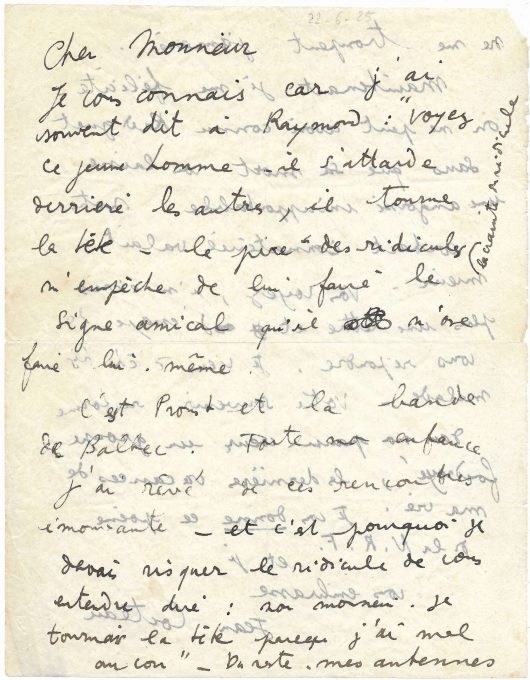 22-6-25
Cher Monsieur
Je vous connais car j'ai
souvent dit à Raymond : "Voyez
ce jeune homme - il s'attarde
derrière les autres, il tourne
la tête - le pire des ridicules
(la crainte du ridicule
m'empêche de lui faire le
signe amical qu'il n'ose
faire lui-même.
C'est Proust et la bande
de Balbec. Toute mon enfance
j'ai rêvé de ces rencontres
émouvante - et c'est pourquoi je
devais risquer le ridicule de vous
entendre dire : non monsieur. Je
tournais la tête parceque j'ai mal
au cou" - Du reste - mes antennes